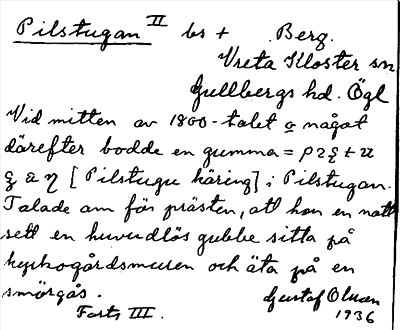 Pilstugan II bs + Berg.
Vreta Kloster sn
Gullbergs hd. Ögl
Vid mitten av 1800-talet o något
därefter bodde en gumma =
[Pilstugu käring] i Pilstugan.
Talade am för prästen, att hon en natt
sett en huvudlös gubbe sitta på
kyrkogårdsmuren och äta på en
smörgås. Gustaf Olsson
Forts III. 1936